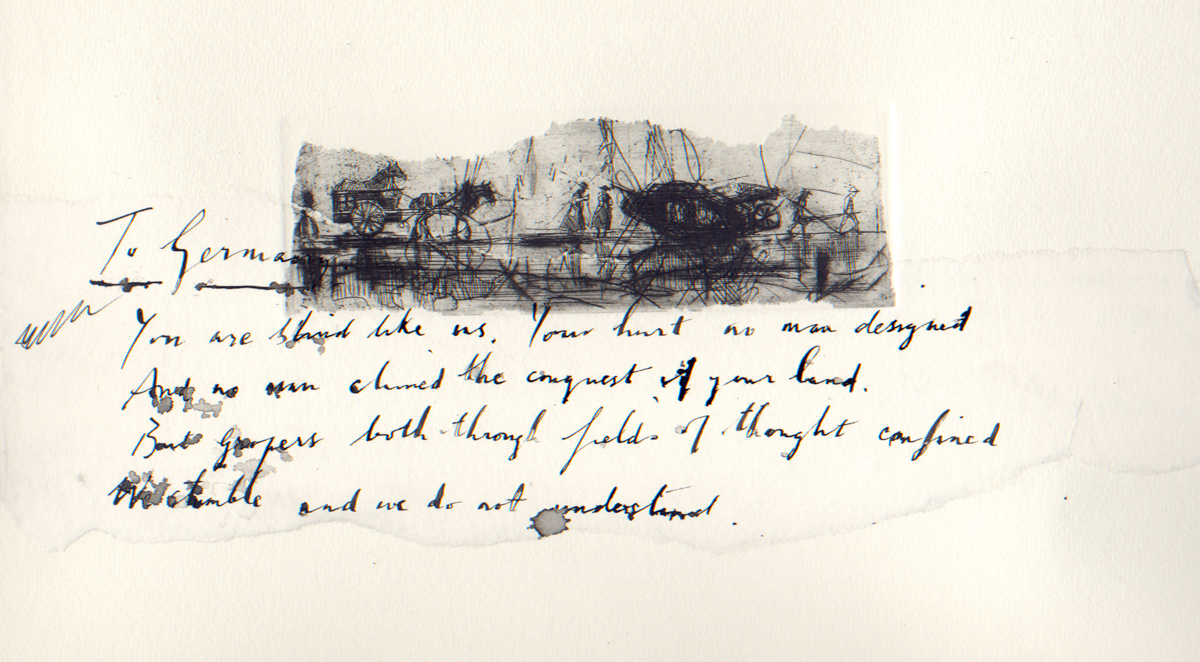 To Germany.
You are blind like us. Your hurt no man designed
And no man claimed the conquest of your land.
But gropers both through fields of thought confined
We stumble and we do not understand.